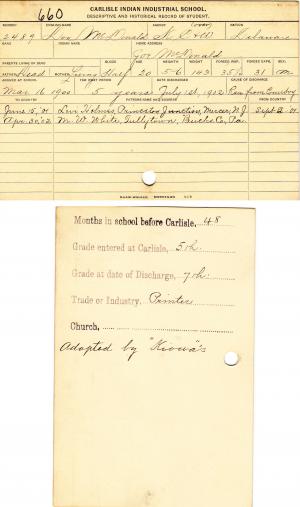 660
CARLISLE INDIAN INDUSTRIAL SCHOOL.
DESCRIPTIVE AND HISTORICAL RECORD OF STUDENT.
NUMBER ENGLISH NAME AGENCY NATION
2489 McDonald Delaware
BAND INDIAN NAME HOME ADDRESS
McDonald
PARENTS LIVING OR DEAD BLOOD AGE HEIGHT WEIGHT FORCED INSP. FORCED EXPR. SEX
FATHER Dead MOTHER Living Half 20 5-6 142 35½ 31 M
ARRIVED AT SCHOOL FOR WHAT PERIOD DATE DISCHARGED CAUSE OF DISCHARGE
Mar. 16 1900 5 years July 1st, 1902 Ran from Country
TO COUNTRY PATRONS NAME AND ADDRESS FROM COUNTRY
June 15, 01 Levi Holmes, Princeton Junction, Mercer, N.J. Sept 2 01
Apr. 30, 02 M. W. White, Tullytown, Bucks Co, Pa.
Months in school before Carlisle, 48
Grade entered at Carlisle, 5th.
Grade at date of Discharge, 7th.
Trade or Industry, Printer
Church,
Adopted by "Kiowa"s